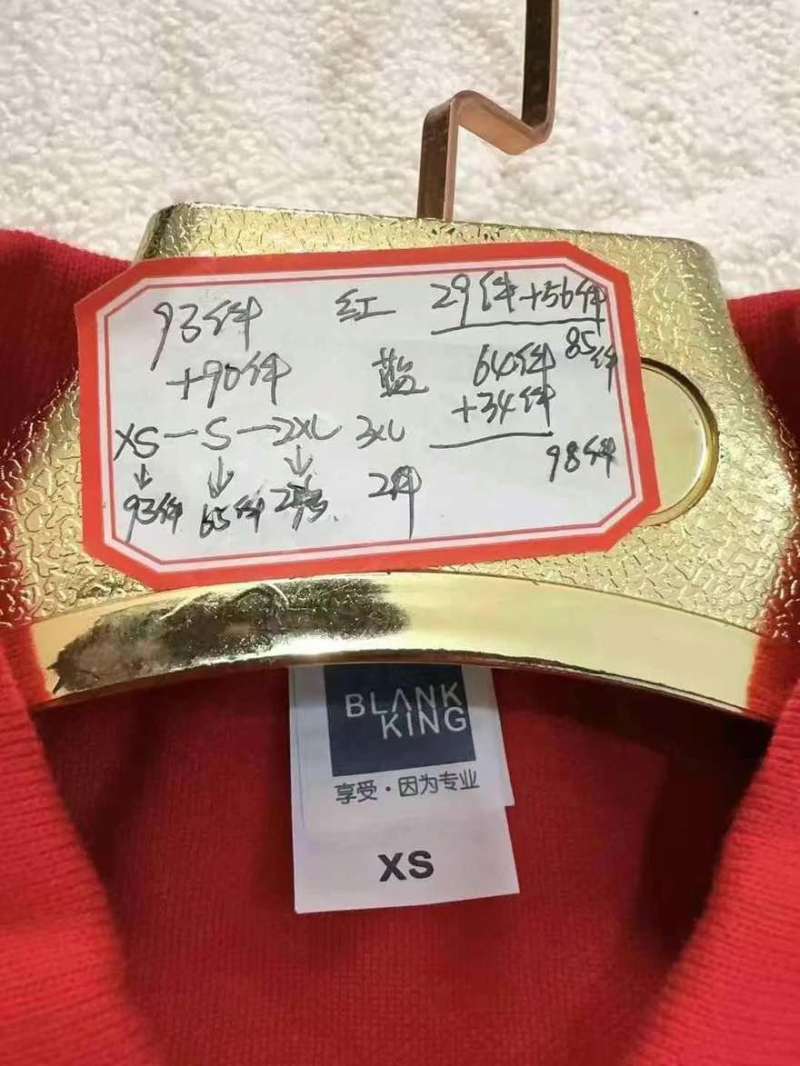 93件 红 29件+56件
85件
+90件 蓝 64件
+34件
98件
XS—S→2XL 3XL
93件 65件 2件
BLANK
KING
享受·因为专业
XS